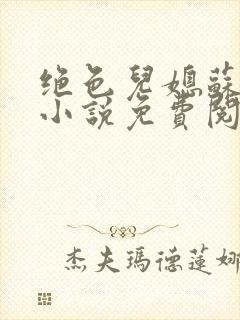 绝色兒媳蘇
小說免費閱
杰夫瑪德蓮娜